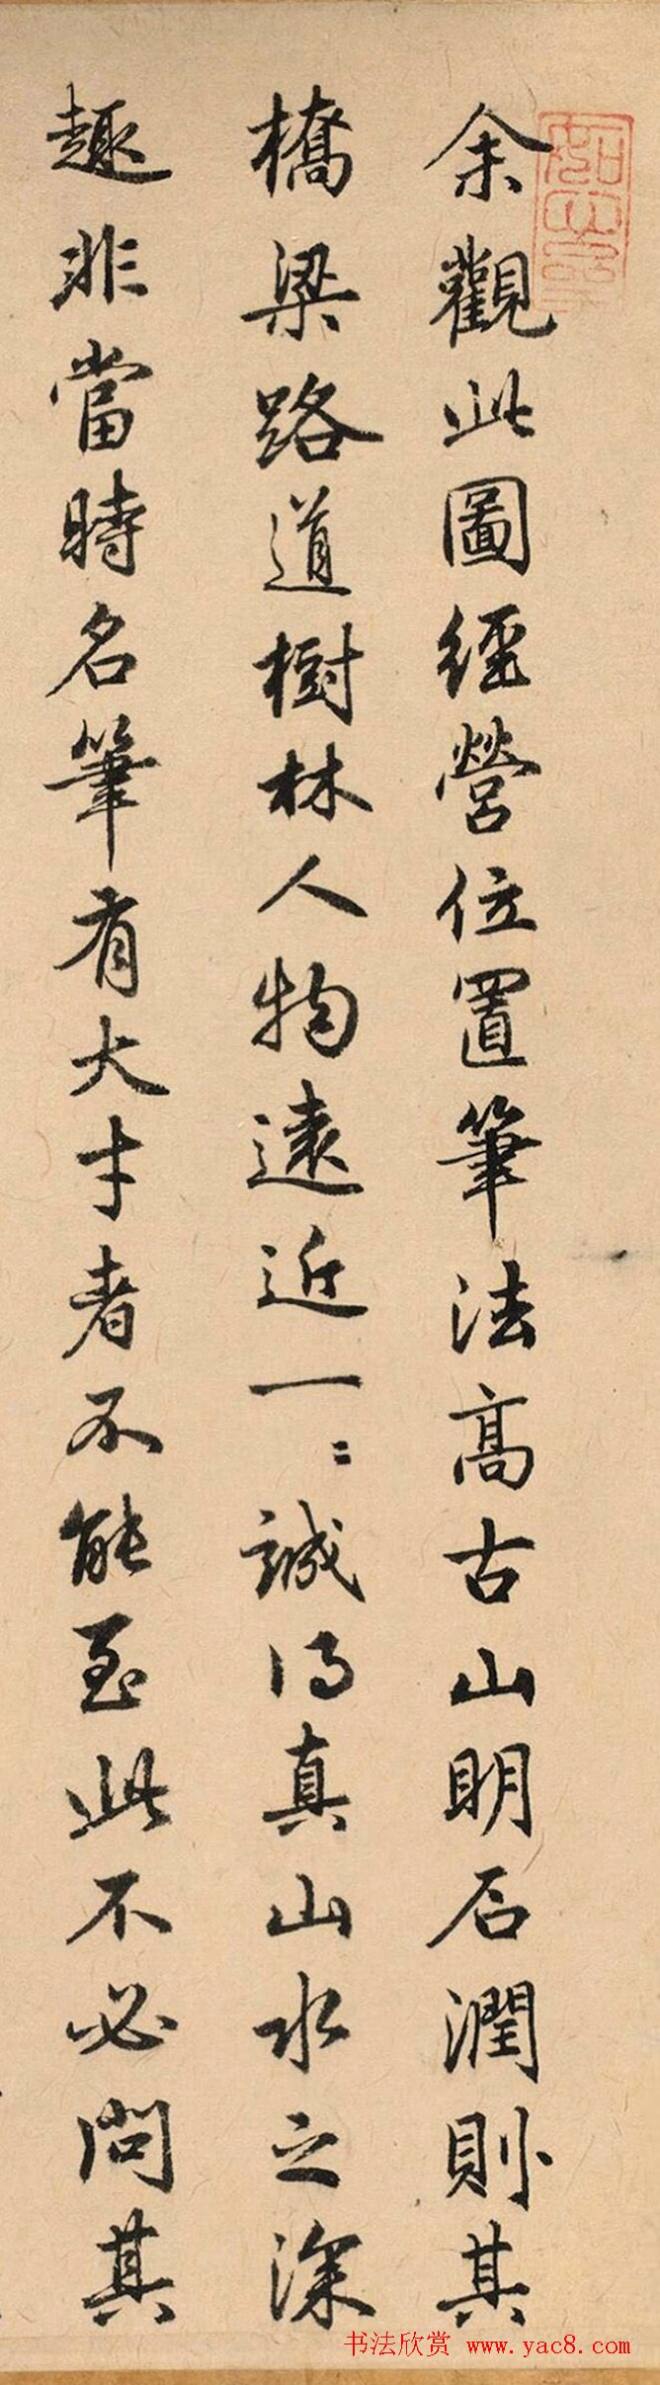 余觀此圖經營位置筆法高古山明石潤則其
橋梁路道樹林人物遠近一〻誠得真山水之深
趣非當時名筆有大才者不能至此不必問其
书法欣赏 www.yac8.com